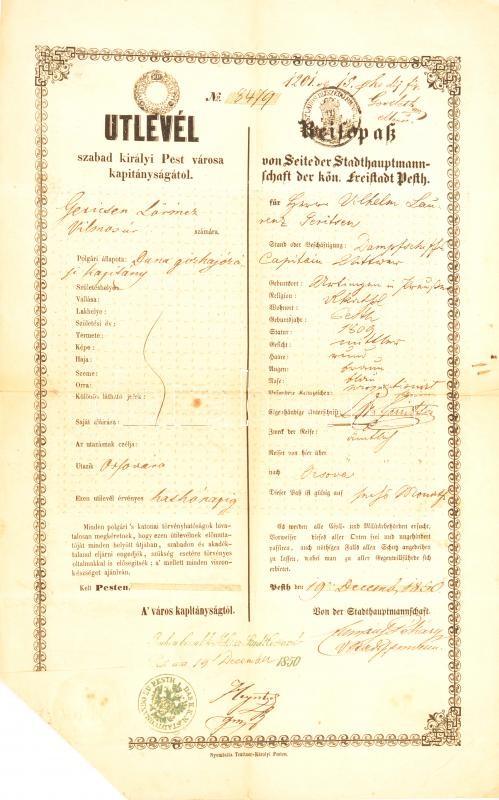 № 8479
UTLEVÉL
szabad királyi Pest városa
kapitányságától.
Gericsen Lőrincz
Vilmos úr számára.
Polgári állapota: Duna gőzhajózá-
si kapitány
Születéshelye:
Vallása:
Lakhelye:
Születési év:
Termete:
Képe:
Haja:
Szeme:
Orra:
Különös látható jelek:
Saját aláirása:
Az utazásnak czélja:
Utazik Orsovára
Ezen utlevél érvényes hat hónapig
Minden polgári 's katonai törvényhatóságok hiva-
talosan megkéretnek, hogy ezen útlevélnek előmutta-
tóját minden helyütt útjában, szabadon és akadék-
talanul eljárni engedjék, szükség esetére törvényes
oltalmukkal is elősegitsék; a' mellett minden viszon-
készséget ajánlván.
Kelt Pesten.
A' város kapitányságtól.
Reisepaß
von Seite der Stadthauptmann-
schaft der kön. Freistadt Pesth.
für Herrn Vilhelm Lau-
renz Geritsen
Stand oder Beschäftigung: Dampfschiffs
Capitain
Geburtsort: in Preußen
Religion:
Wohnort: Pesth
Geburtsjahr: 1809
Statur: mittler
Gesicht: rund
Haare: braun
Augen: blau
Nase: proportionirt
Besondere Kennzeichen:
Eigenhändige Unterschrift:
Zweck der Reise: ämtlich
Reiset von hier über
nach Orsova
Dieser Paß ist giltig auf sechs Monath
Es werden alle Civil- und Militärbehörden ersucht,
Vorweiser dieses aller Orten frei und ungehindert
passiren, auch nöthigen Falls allen Schutz angedeihen
zu lassen, wobei man zu aller Gegenwillfährde sich
erbietet.
Pesth 19 Decemb. 1850
Von der Stadthauptmannschaft
19 December 1850
Nyomtatta Trattner-Károlyi Pesten.